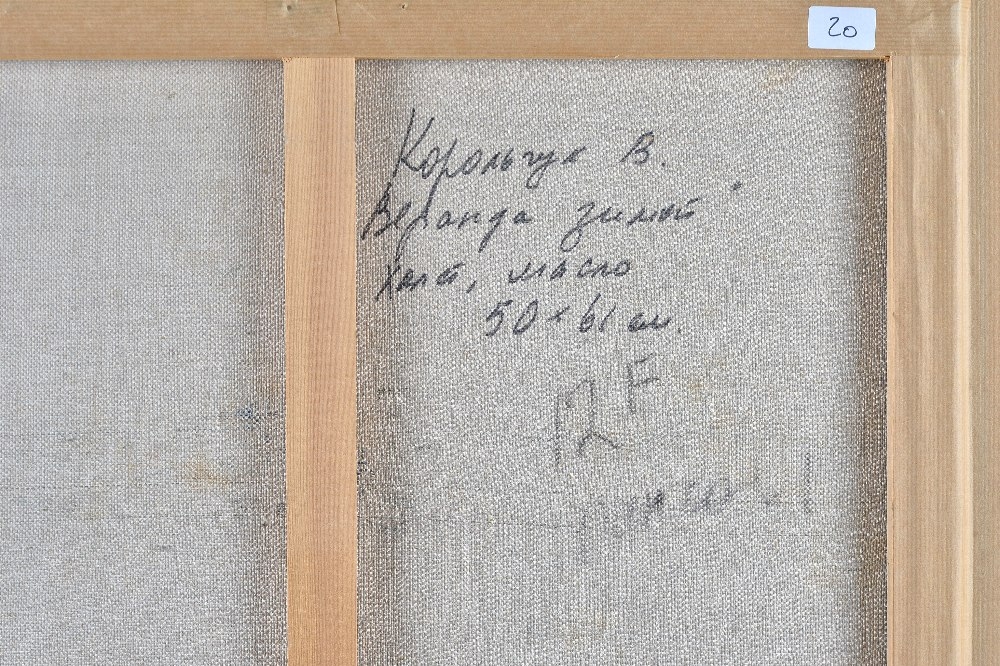 20
Корольчук В.
Веранда зимой"
Холст, масло
50 × 61 см.
12 F